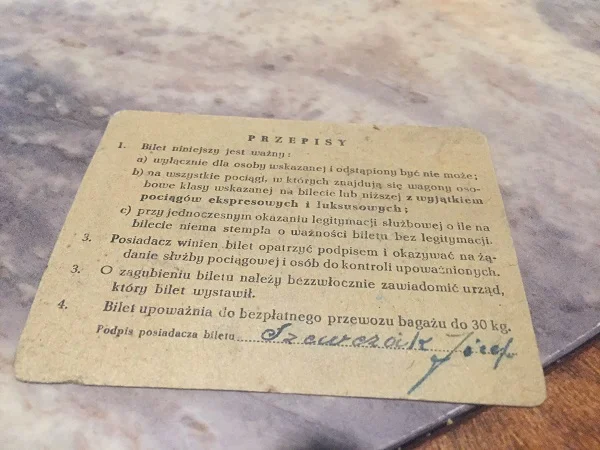 PRZEPISY
1. Bilet niniejszy jest ważny:
a) wyłącznie dla osoby wskazanej i odstąpiony być nie może;
b) na wszystkie pociągi, w których znajdują się wagony oso-
bowe klasy wskazanej na bilecie lub niższej z wyjątkiem
pociągów ekspresowych i luksusowych;
c) przy jednoczesnym okazaniu legitymacji służbowej o ile na
bilecie niema stempla o ważności biletu bez legitymacji.
3. Posiadacz winien bilet opatrzyć podpisem i okazywać na żą-
danie służby pociągowej i osób do kontroli upoważnionych.
3. O zagubieniu biletu należy bezzwłocznie zawiadomić urząd,
który bilet wystawił.
4. Bilet upoważnia do bezpłatnego przewozu bagażu do 30 kg.
Podpis posiadacza biletu Szewczak Józef